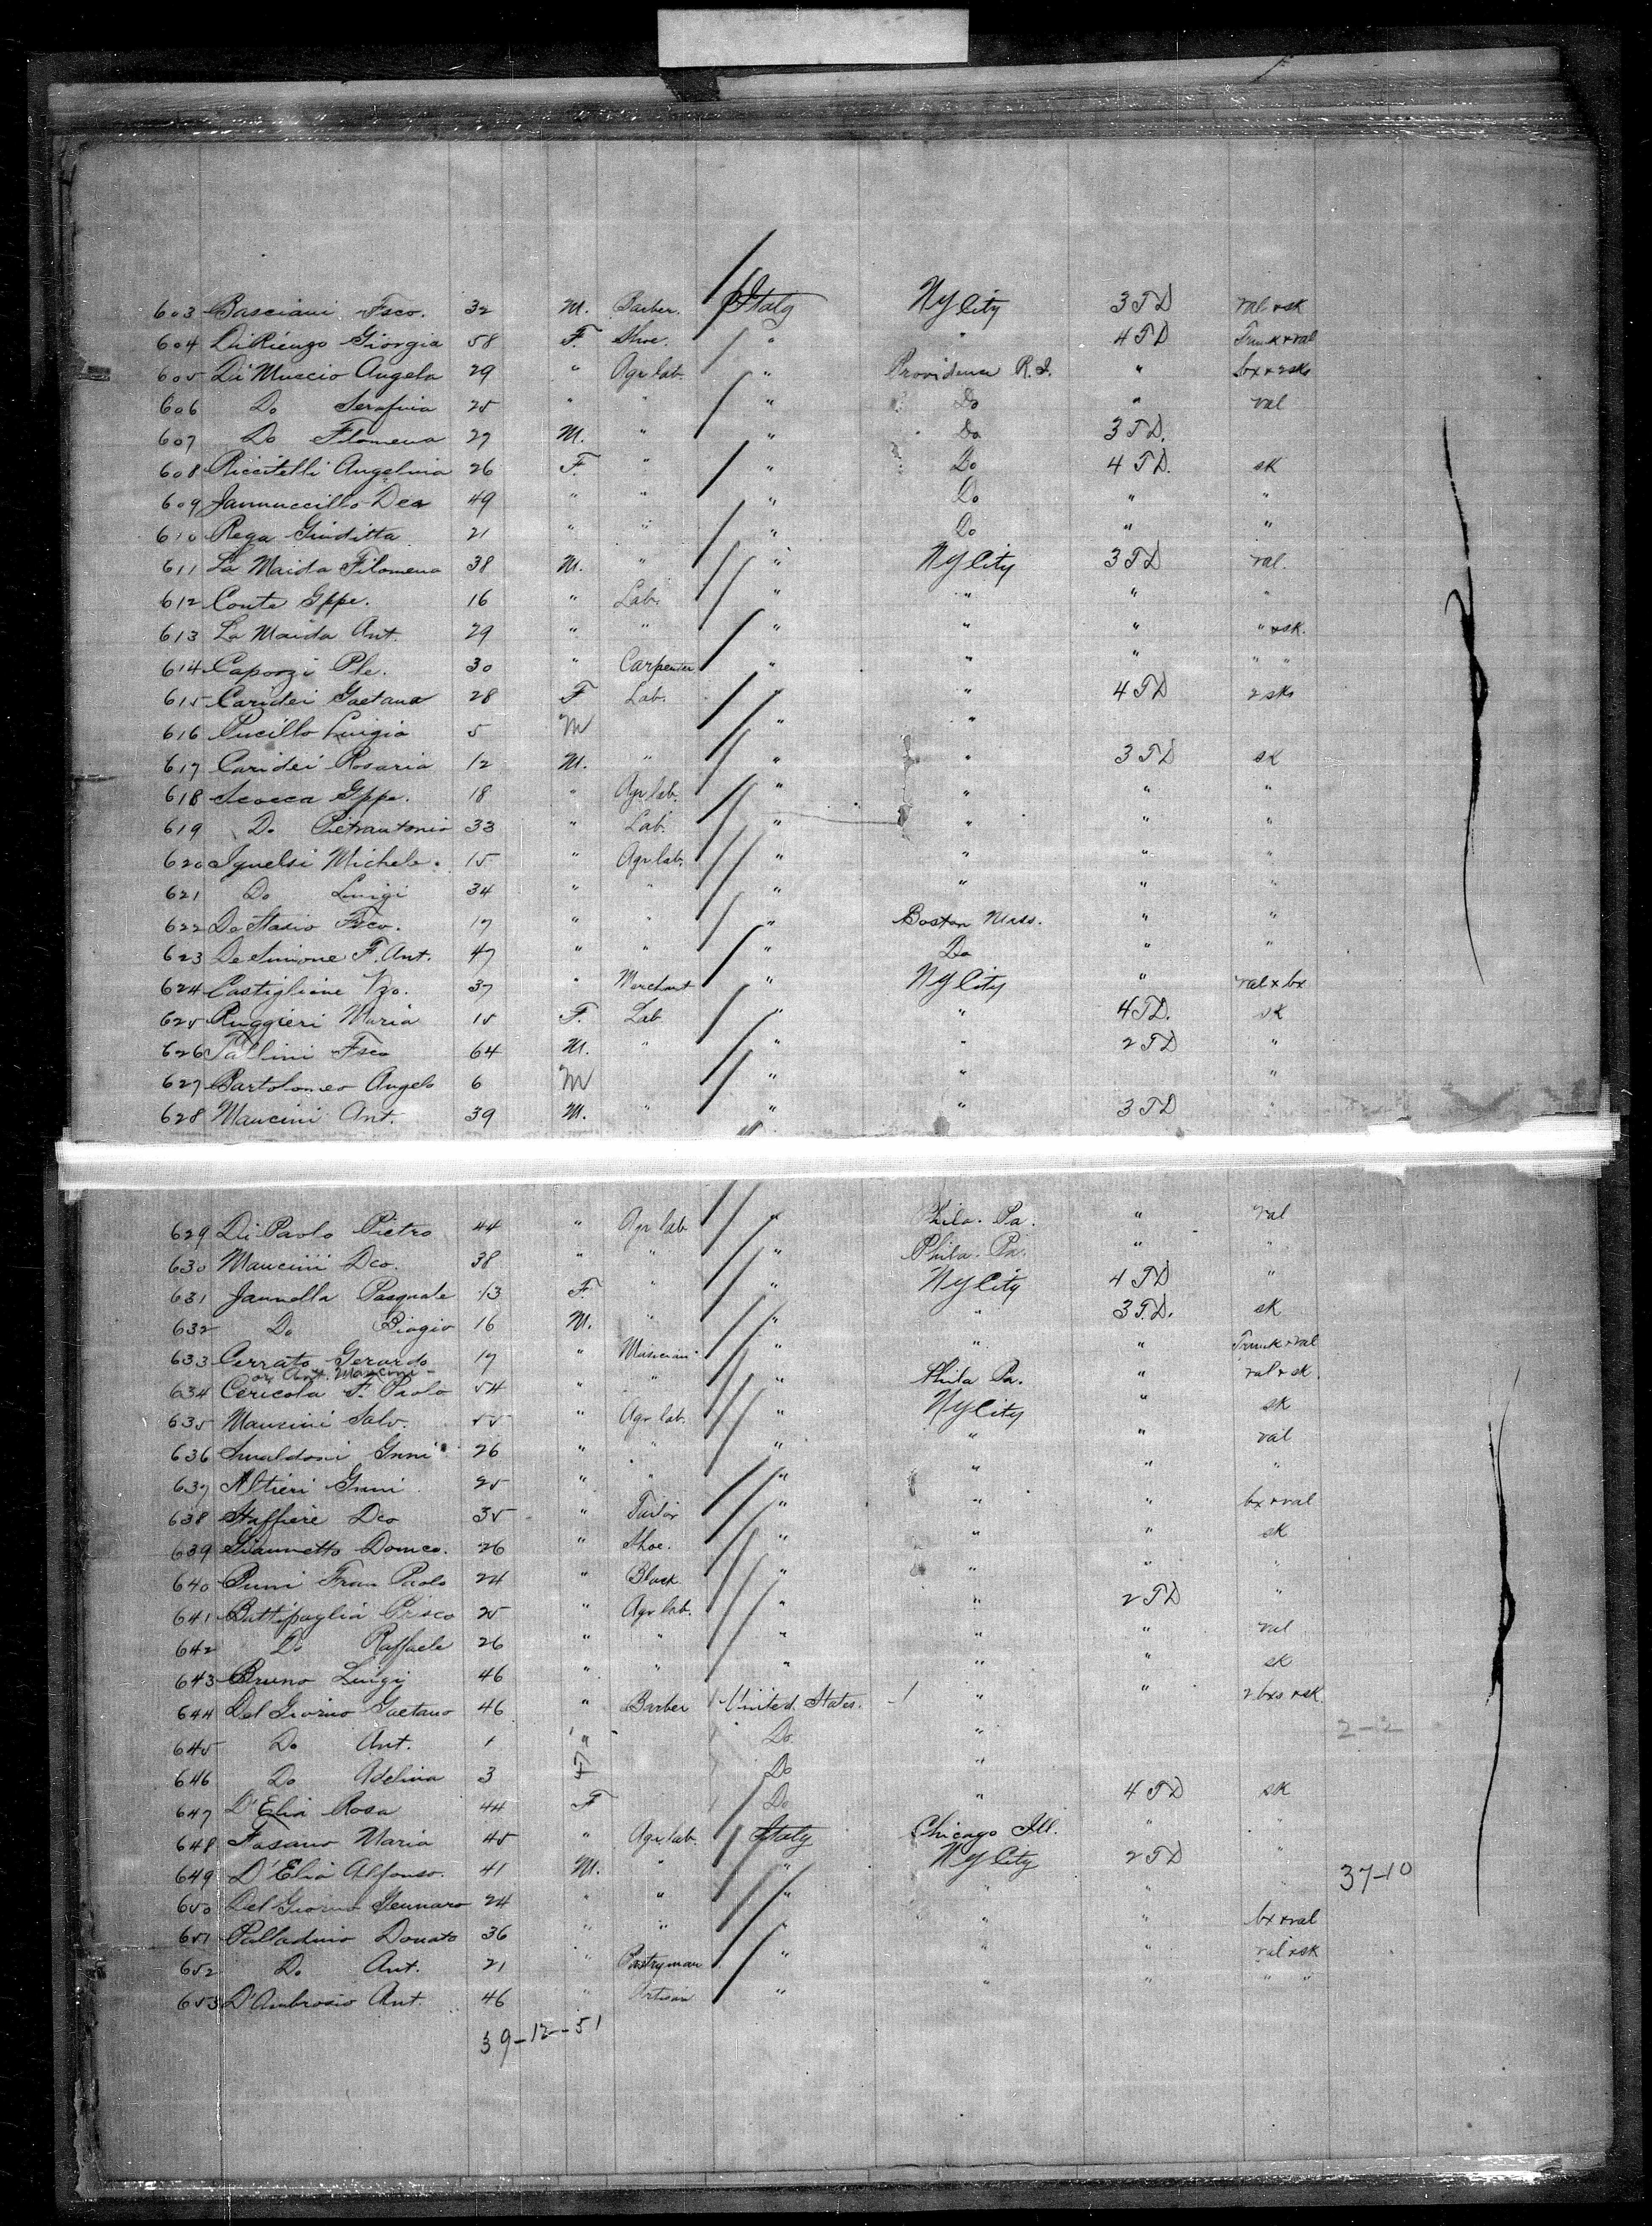 603 Basciani Fsco. 32 M. Barber. Italy N Y City 3 T D val + sk
604 Di Rienzo Giorgia 58 F. Shoe. " " 4 T D Trunk + val
605 Di Muccio Angela 29 " Agr lab. " Providence R. I. " bx + 2 sks
606 Do Serafina 25 " " " Do " val
607 Do Filomena 27 M. " " Do 3 T D.
608 Riccitelli Angelina 26 F " " Do 4 T D. sk
609 Jannuccillo Dea 49 " " " Do " "
610 Rega Giuditta 21 " " " Do " "
611 La Maida Filomena 38 M. " " N Y City 3 T D val.
612 Conte Gppe. 16 " Lab. " " " "
613 La Maida Ant. 29 " " " " " " + sk.
614 Caporzi Ple. 30 " Carpenter " " " " "
615 Caridei Gaetana 28 F Lab. " " 4 T D 2 sks
616 Pucillo Luigia 5 M " "
617 Caridei Rosaria 12 M. " " " 3 T D sk
618 Scocca Gppe. 18 " Agr lab. " " " "
619 Do Pietrantonio 33 " Lab. " " " "
620 Ignelsi Michele. 15 " Agr lab. " " " "
621 Do Luigi 34 " " " " " "
622 De Stasio Fsco. 17 " " " Boston Mass. " "
623 De Simone F. Ant. 47 " " " Do " "
624 Castiglione Vzo. 37 " Merchant " N Y City " val + bx
625 Ruggieri Maria 15 F. Lab " " 4 T D. sk
626 Tallini Fsco 64 M. " " " 2 T D "
627 Bartolomeo Angelo 6 M " " "
628 Mancini Ant. 39 M. " " " 3 T D "
629 Di Paolo Pietro 44 " Agr lab. " Phila. Pa. " val
630 Mancini Dco. 38 " " " Phila. Pa. " "
631 Jannella Pasquale 13 F. " " N Y City 4 T D "
632 Do Biagio 16 M. " " " 3 T. D. sk
633 Cerrato Gerardo 17 " Musician " " " Trunk + val
or Ant. Mancini
634 Cericola F. Paolo 54 " " " Phila Pa. " val + sk.
635 Mancini Salv. 55 " Agr lab. " N Y City " sk
636 Smaldoni Gnni 26 " " " " " val
637 Altieri Gnni 25 " " " " " "
638 Staffiere Dco 35 " Tailor " " " bx + val
639 Giannetto Domco. 26 " Shoe. " " " sk
640 Puni Fran Paolo 24 " Black " " " "
641 Battipaglia Prisco 25 " Agr lab. " " 2 T D "
642 Do Raffaele 26 " " " " " val
643 Bruno Luigi 46 " " " " " sk
644 Del Giorno Gaetano 46 " Barber United States. " " 2 bxs + sk
645 Do Ant. 1 " Do " 2-2
646 Do Adelina 3 F Do "
647 D'Elia Rosa 44 F Do " 4 T D sk
648 Fasano Maria 45 " Agr lab. Italy Chicago Ill. " "
649 D'Elia Alfonso. 41 M. " " N Y City 2 T D " 37-10
650 Del Giorno Gennaro 24 " " " " " "
651 Palladino Donato 36 " " " " " bx + val
652 Do Ant. 21 " Pastryman " " " val + sk
653 D'Ambrosio Ant. 46 " Artisan " " " " "
39-12-51